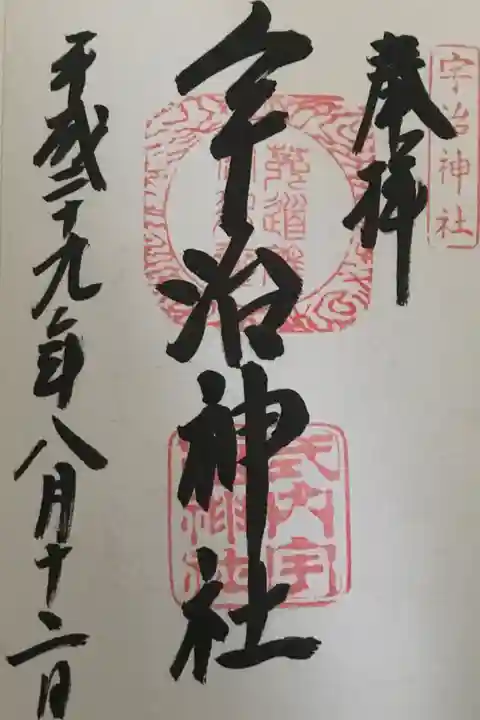 宇治神社
奉拝
宇治神社
式内宇治神社
平成二十九年八月十二日